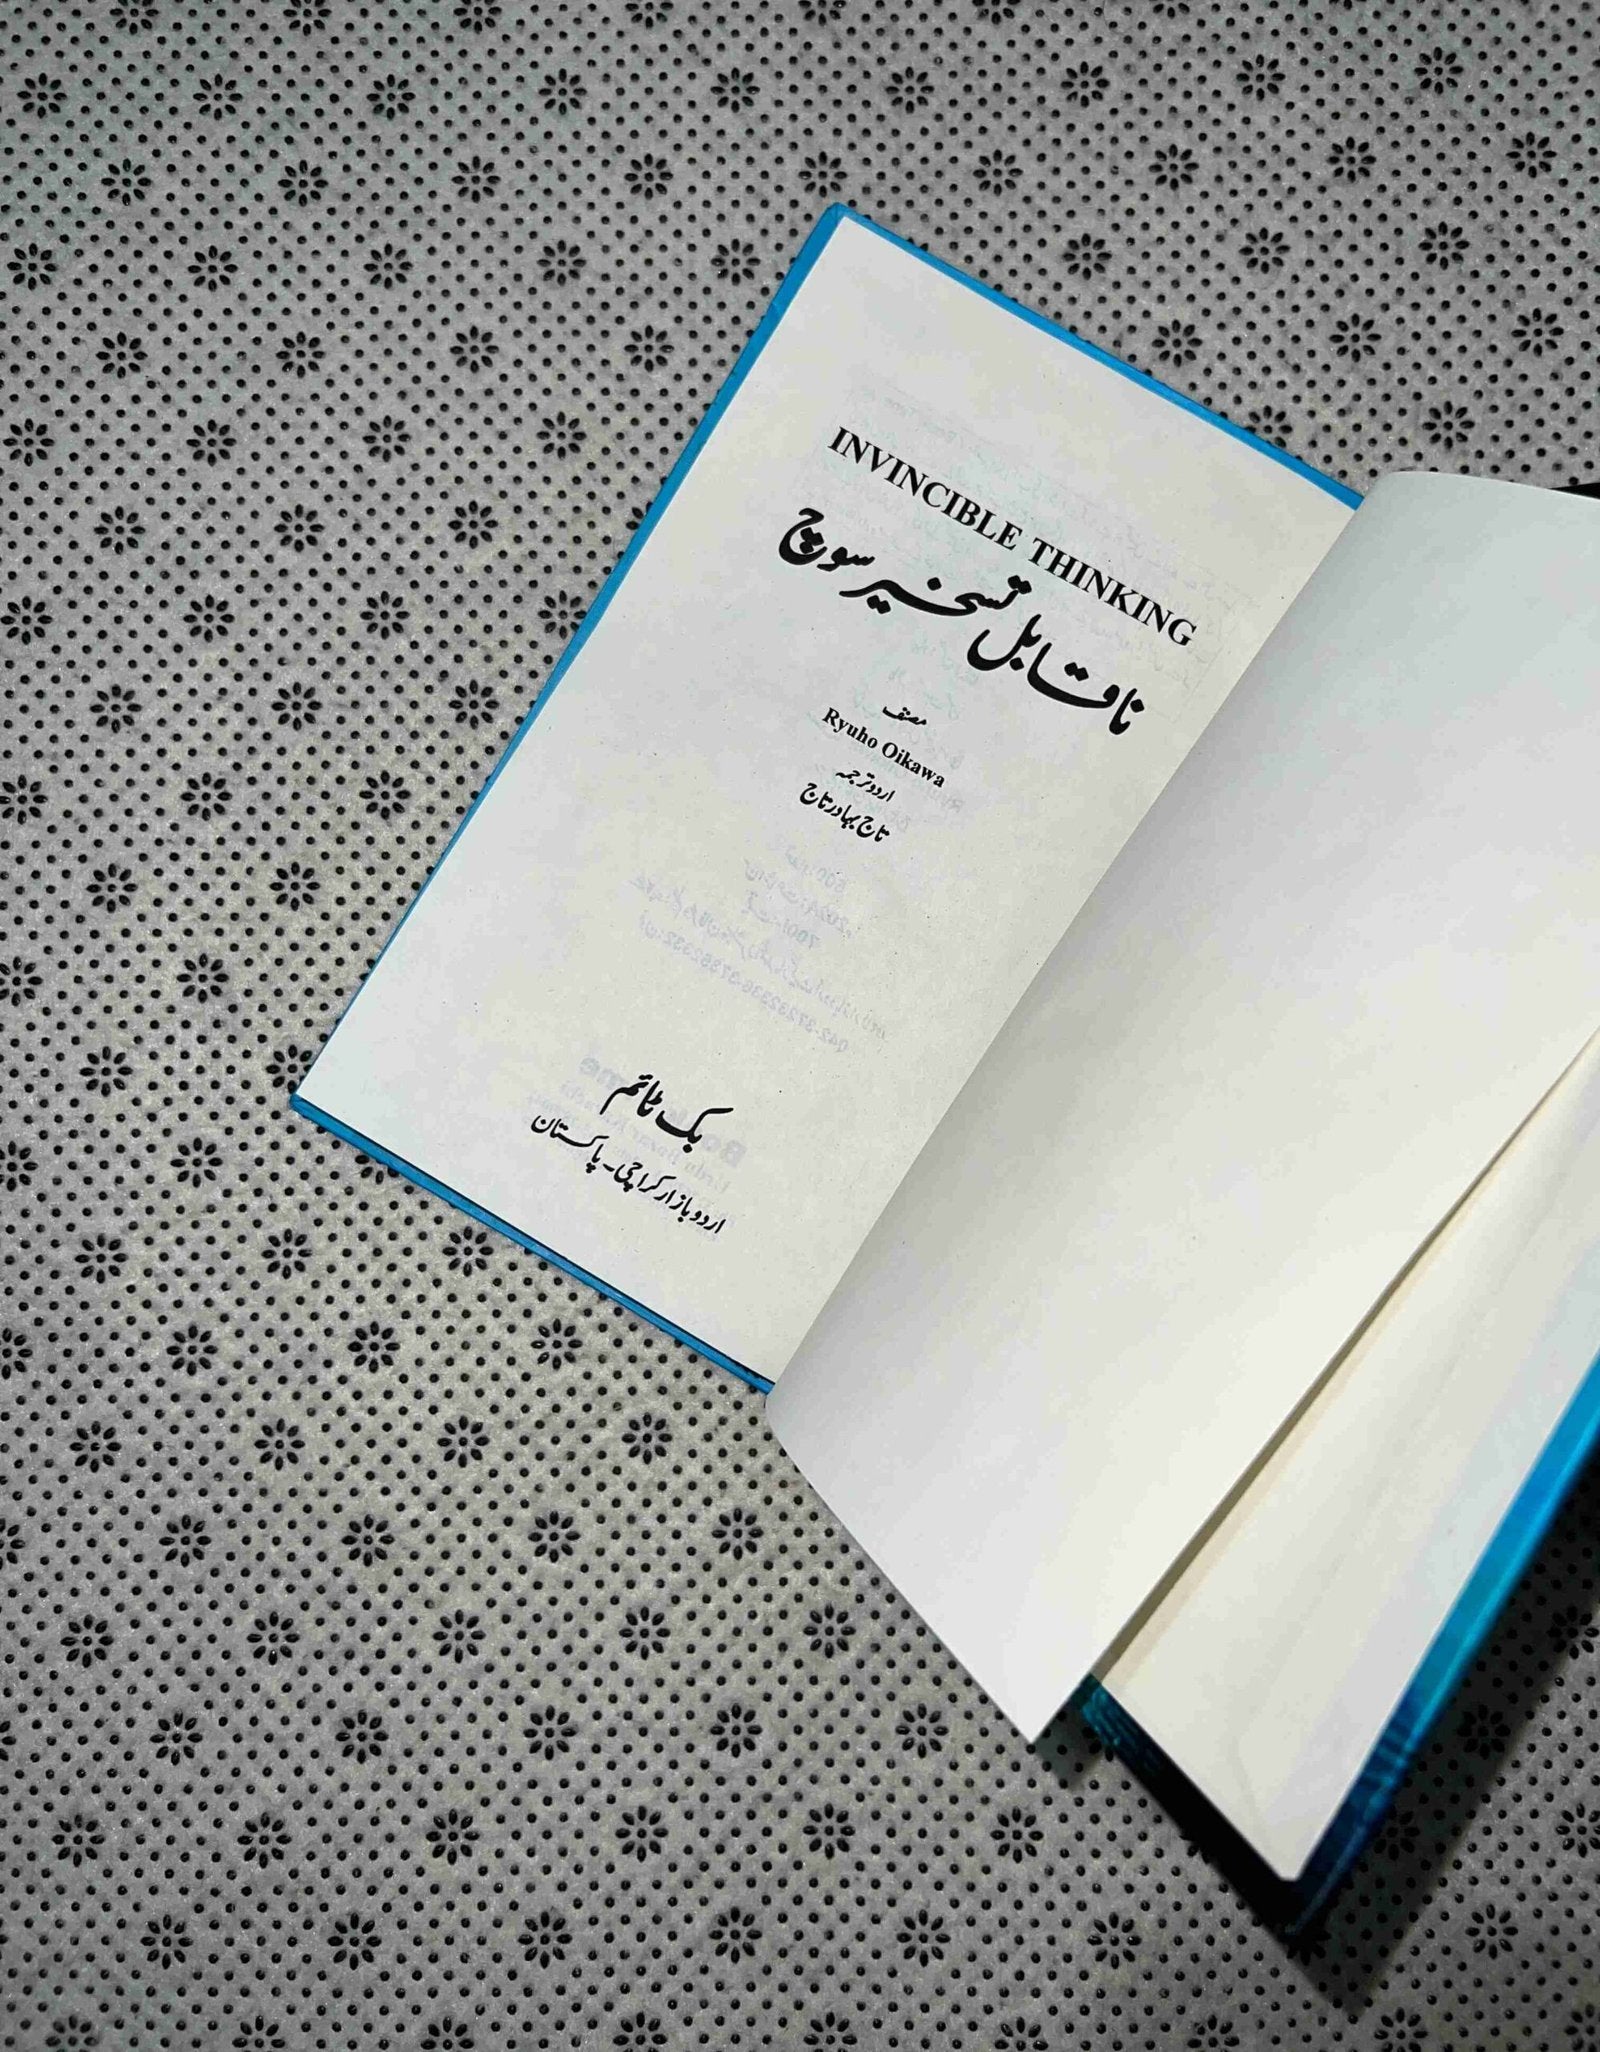 INVINCIBLE THINKING
ناقابل تسخیر سوچ
مصنف
Ryuho Oikawa
اردو ترجمہ
تاج بہادر تاج
بک ٹائم
اردو بازار کراچی۔ پاکستان